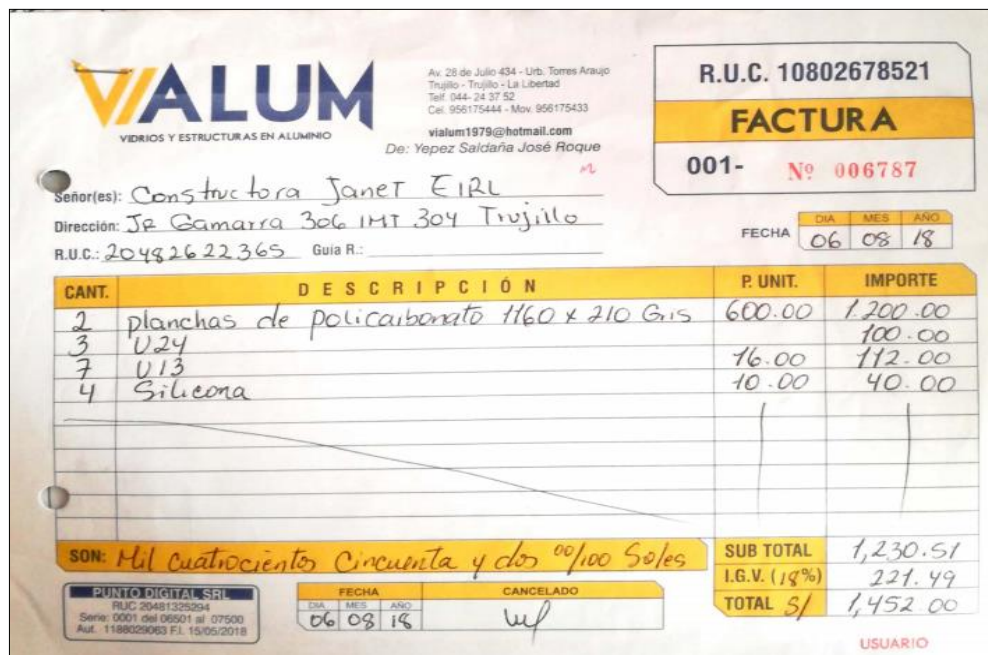 VIALUM
VIDRIOS Y ESTRUCTURAS EN ALUMINIO
Av. 28 de Julio 434 - Urb. Torres Araujo
Trujillo - Trujillo - La Libertad
Telf. 044- 24 37 52
Cel. 956175444 - Mov. 956175433
vialum1979@hotmail.com
De: Yepez Saldaña José Roque
R.U.C. 10802678521
FACTURA
001- Nº 006787
Señor(es): Constructora Janet EIRL
Dirección: JR Gamarra 306 INT 304 Trujillo
R.U.C.: 20482622365 Guía R.:
FECHA DIA MES AÑO
06 08 18
CANT. DESCRIPCIÓN P. UNIT. IMPORTE
2 planchas de policarbonato 1160 x 210 Gris 600.00 1.200.00
3 U24 100.00
7 U13 16.00 112.00
4 Silicona 10.00 40.00
SON: Mil cuatrocientos Cincuenta y dos 00/100 Soles
SUB TOTAL 1,230.51
I.G.V. (18%) 221.49
TOTAL S/ 1,452.00
PUNTO DIGITAL SRL
RUC 20481325294
Serie: 0001 del 06501 al 07500
Aut. 1188029063 F.I. 15/05/2018
FECHA CANCELADO
DIA MES AÑO
06 08 18
USUARIO